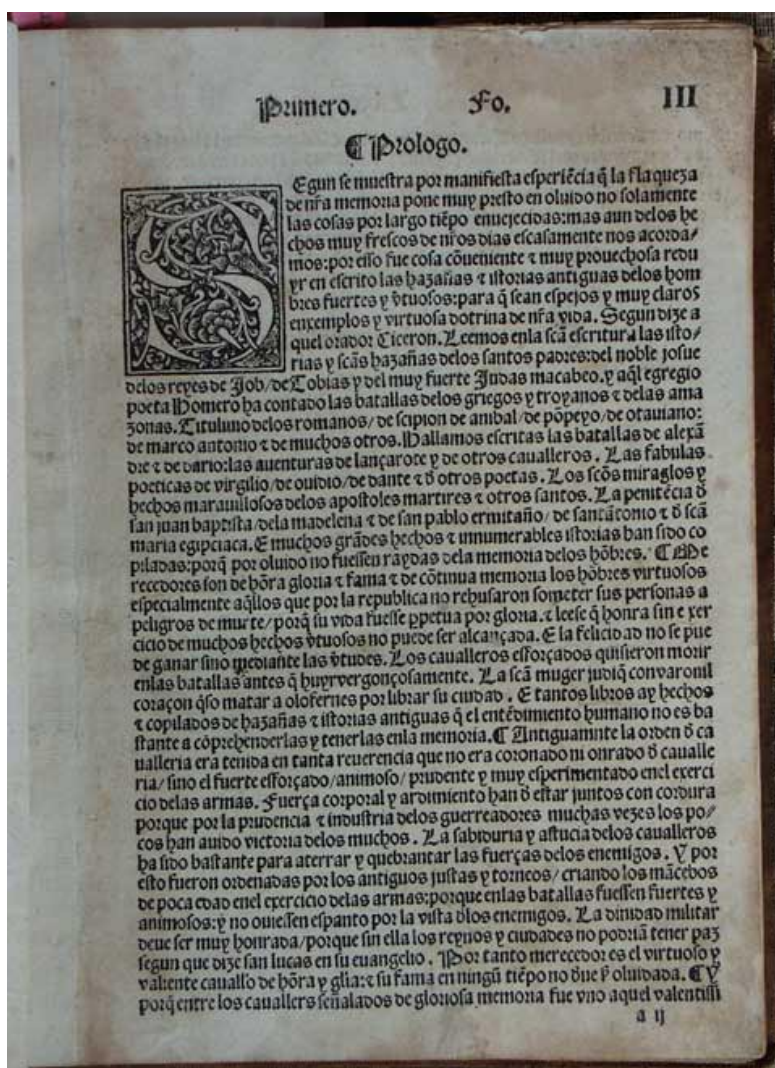 Primero. Fo. III
¶ Prologo.
SEgun se muestra por manifiesta esperiẽcia q̃ la flaqueza
de nr̃a memoria pone muy presto en oluido no solamente
las cosas por largo tiẽpo enuejecidas:mas aun delos he
chos muy frescos de nr̃os dias escasamente nos acorda/
mos:por esso fue cosa cõueniente ⁊ muy prouechosa redu
yr en escrito las hazañas ⁊ istorias antiguas delos hom
bres fuertes y v̓tuosos:para q̃ sean espejos y muy claros
enxemplos y virtuosa dotrina de nr̃a vida. Segun dize a
quel orador Ciceron. Leemos enla scã escritura las isto/
rias y scãs hazañas delos santos padres:del noble josue
delos reyes de Job/de Tobias y del muy fuerte Judas macabeo.y aq̃l egregio
poeta Homero ha contado las batallas delos griegos y troyanos ⁊ delas ama
zonas. Tituliuio delos romanos/de scipion de anibal/de põpeyo/de otauiano:
de marco antonio ⁊ de muchos otros. Hallamos escritas las batallas de alexã
dre ⁊ de dario:las auenturas de lançarote y de otros caualleros. Las fabulas
poeticas de virgilio/de ouidio/de dante ⁊ d̓ otros poetas. Los scõs miraglos y
hechos marauillosos delos apostoles martires ⁊ otros santos. La penitẽcia d̓
san juan baptista/dela madelena ⁊ de san pablo ermitaño/de santãtonio ⁊ d̓ scã
maria egipciaca. E muchos grãdes hechos ⁊ innumerables istorias han sido co
piladas:porq̃ por oluido no fuessen raydas dela memoria delos hõbres. ¶ Me
recedores son de hõra gloria ⁊ fama ⁊ de cõtinua memoria los hõbres virtuosos
especialmente aq̃llos que por la republica no rehusaron someter sus personas a
peligros de muerte/porq̃ su vida fuesse ꝑpetua por gloria.⁊ leese q̃ honra sin exer
cicio de muchos hechos v̓tuosos no puede ser alcançada. E la felicidad no se pue
de ganar sino mediante las v̓tudes. Los caualleros esforçados quisieron morir
enlas batallas antes q̃ huyr vergonçosamente. La scã muger judiq̃ con varonil
coraçon q̃so matar a olofernes por librar su ciudad . E tantos libros ay hechos
⁊ copilados de hazañas ⁊ istorias antiguas q̃ el entẽdimiento humano no es ba
stante a cõprehenderlas y tenerlas enla memoria. ¶ Antiguamnte la orden d̓ ca
ualleria era tenida en tanta reuerencia que no era coronado ni onrado d̓ caualle
ria/sino el fuerte esforçado/animoso/prudente y muy esperimentado enel exerci
cio delas armas. Fuerça corporal y ardimiento han d̓ estar juntos con cordura
porque por la prudencia ⁊ industria delos guerreadores muchas vezes los po/
cos han auido victoria delos muchos . La sabiduria y astucia delos caualleros
ha sido bastante para aterrar y quebrantar las fuerças delos enemigos . Y por
esto fueron ordenadas por los antiguos justas y torneos/criando los mãcebos
de poca edad enel exercicio delas armas:porque enlas batallas fuessen fuertes y
animosos:y no ouiessen espanto por la vista d̓los enemigos. La dinidad militar
deue ser muy honrada/porque sin ella los reynos y ciudades no podriã tener paz
segun que dize san lucas en su euangelio . Por tanto merecedor es el virtuoso y
valiente cauall̓o de hõra y gl̃ia:⁊ su fama en ningũ tiẽpo no d̓ue s̓ oluidada. ¶ Y
porq̃ entre los cauallers señalados de gloriosa memoria fue vno aquel valentissi
a ij